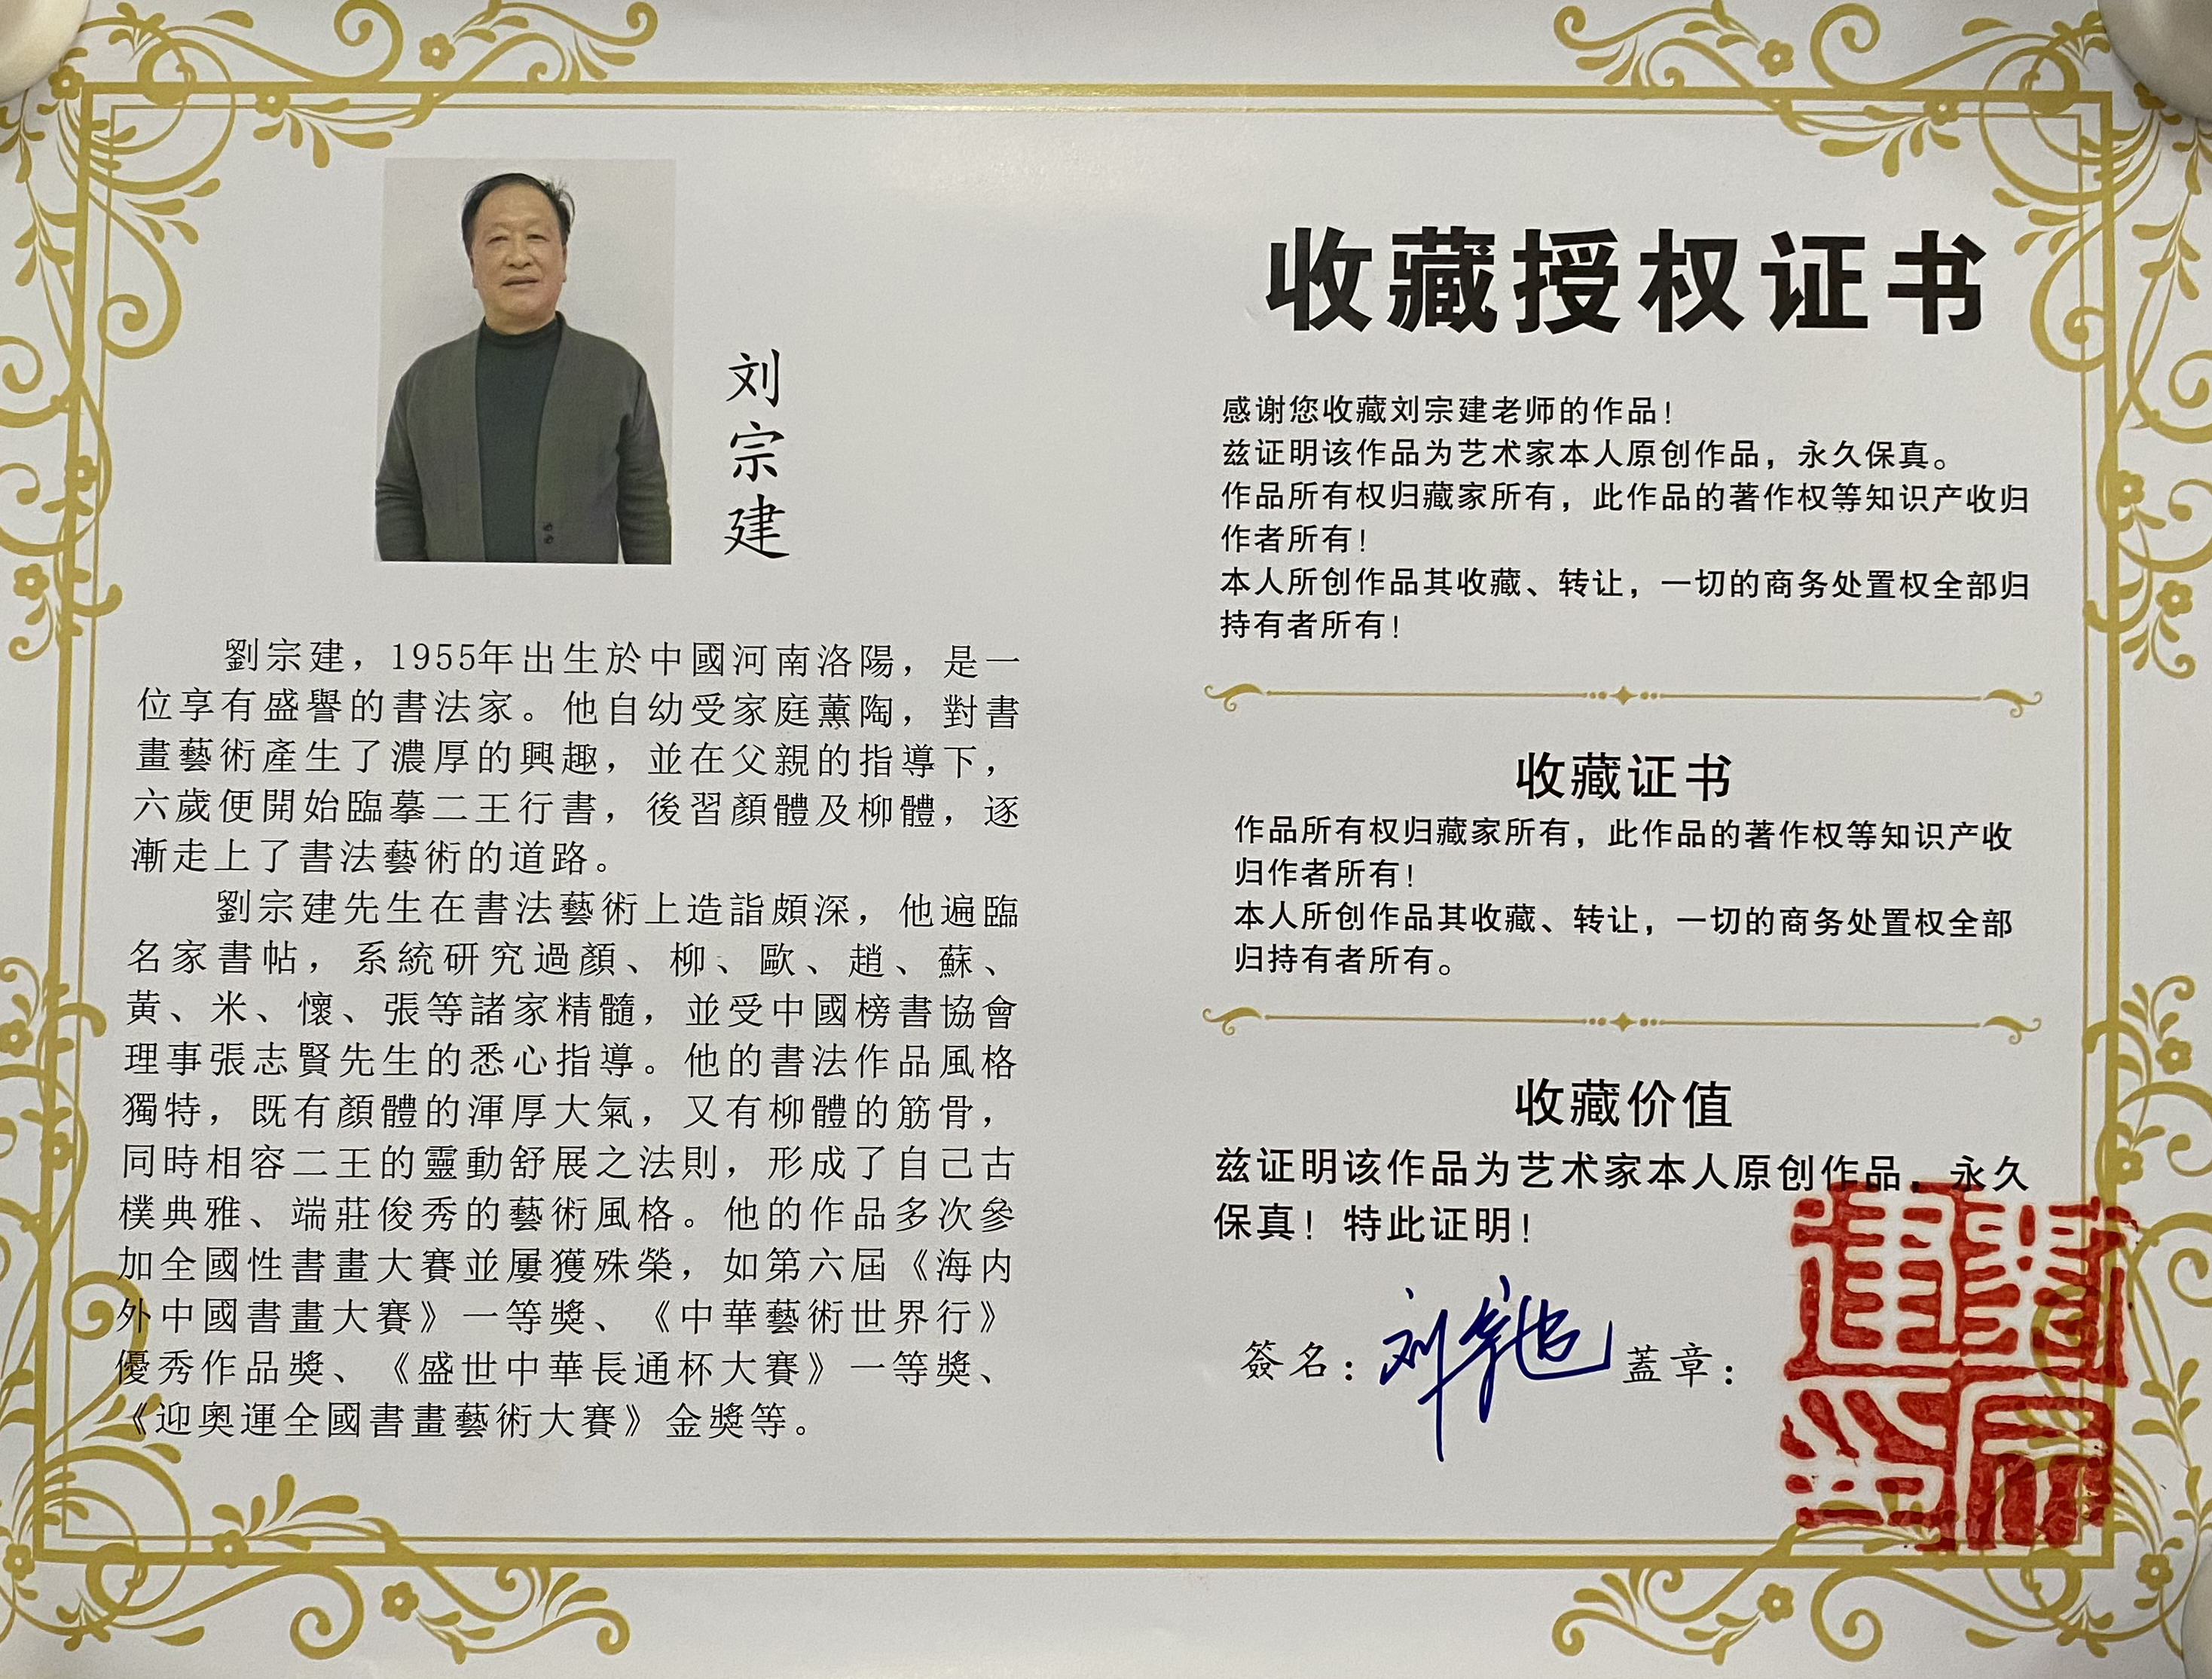 刘
宗
建
劉宗建，1955年出生於中國河南洛陽，是一
位享有盛譽的書法家。他自幼受家庭薰陶，對書
畫藝術產生了濃厚的興趣，並在父親的指導下，
六歲便開始臨摹二王行書，後習顏體及柳體，逐
漸走上了書法藝術的道路。
劉宗建先生在書法藝術上造詣頗深，他遍臨
名家書帖，系統研究過顏、柳、歐、趙、蘇、
黃、米、懷、張等諸家精髓，並受中國榜書協會
理事張志賢先生的悉心指導。他的書法作品風格
獨特，既有顏體的渾厚大氣，又有柳體的筋骨，
同時相容二王的靈動舒展之法則，形成了自己古
樸典雅、端莊俊秀的藝術風格。他的作品多次參
加全國性書畫大賽並屢獲殊榮，如第六屆《海内
外中國書畫大賽》一等獎、《中華藝術世界行》
優秀作品獎、《盛世中華長通杯大賽》一等獎、
《迎奧運全國書畫藝術大賽》金獎等。
收藏授权证书
感谢您收藏刘宗建老师的作品！
兹证明该作品为艺术家本人原创作品，永久保真。
作品所有权归藏家所有，此作品的著作权等知识产收归
作者所有！
本人所创作品其收藏、转让，一切的商务处置权全部归
持有者所有！
收藏证书
作品所有权归藏家所有，此作品的著作权等知识产收
归作者所有！
本人所创作品其收藏、转让，一切的商务处置权全部
归持有者所有。
收藏价值
兹证明该作品为艺术家本人原创作品，永久
保真！特此证明！
簽名：刘宗建 蓋章：